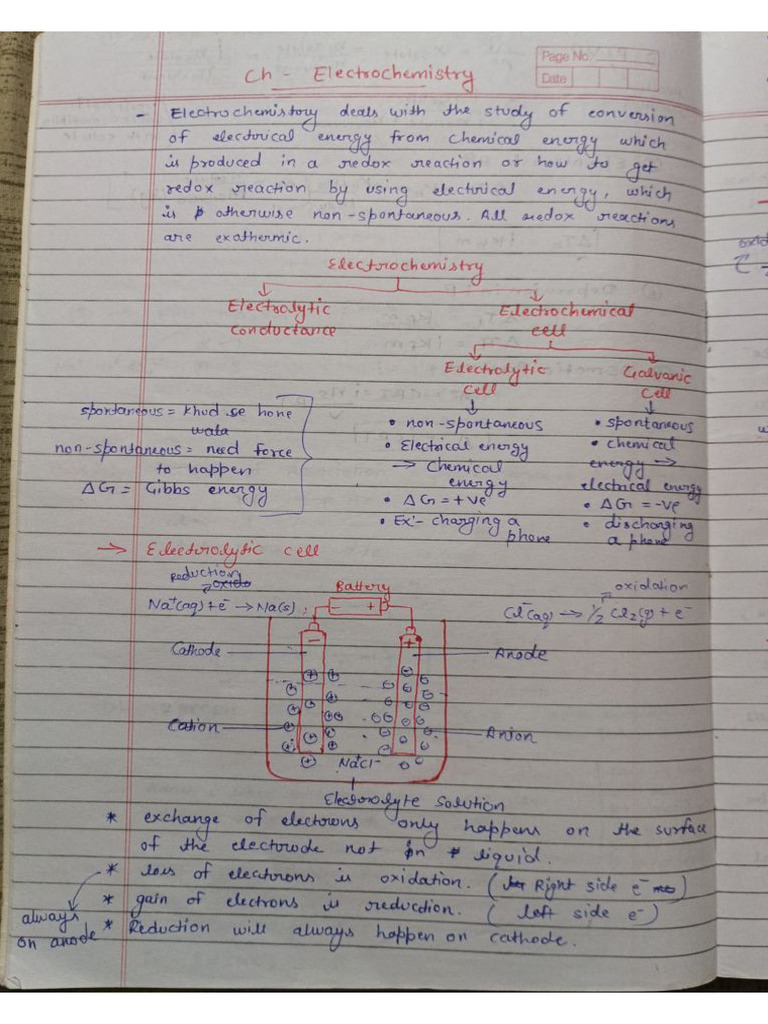 Page No.
Date
Ch - Electrochemistry
- Electrochemistory deals with the study of conversion
of electrical energy from chemical energy which
is produced in a redox reaction or how to get
redox reaction by using electrical energy, which
is otherwise non-spontaneous. All redox reactions
are exathermic.
Electrochemistry
Electrolytic conductance
Electrochemical cell
Electrolytic cell
Galvanic cell
spontaneous = khud se hone
wala
non-spontaneous = need force
to happen
ΔG = Gibbs energy
• non-spontaneous
• Electrical energy
→ Chemical
energy
• ΔG = +ve
• Ex:- charging a
phone
• spontaneous
• chemical
energy →
electrical energy
• ΔG = -ve
• discharging
a phone
→ Electrolytic cell
Reduction
oxido
Na⁺(aq) + e⁻ → Na(s)
Battery
- +
oxidation
Cl⁻(aq) → 1/2 Cl₂(g) + e⁻
Cathode
- +
Anode
Cation
Anion
Na⁺Cl⁻
Electrolyte solution
* exchange of electrons only happens on the surface
of the electrode not in liquid.
* loss of electrons is oxidation. (Right side e⁻)
* gain of electrons is reduction. (left side e⁻)
always
on anode
* Reduction will always happen on cathode.